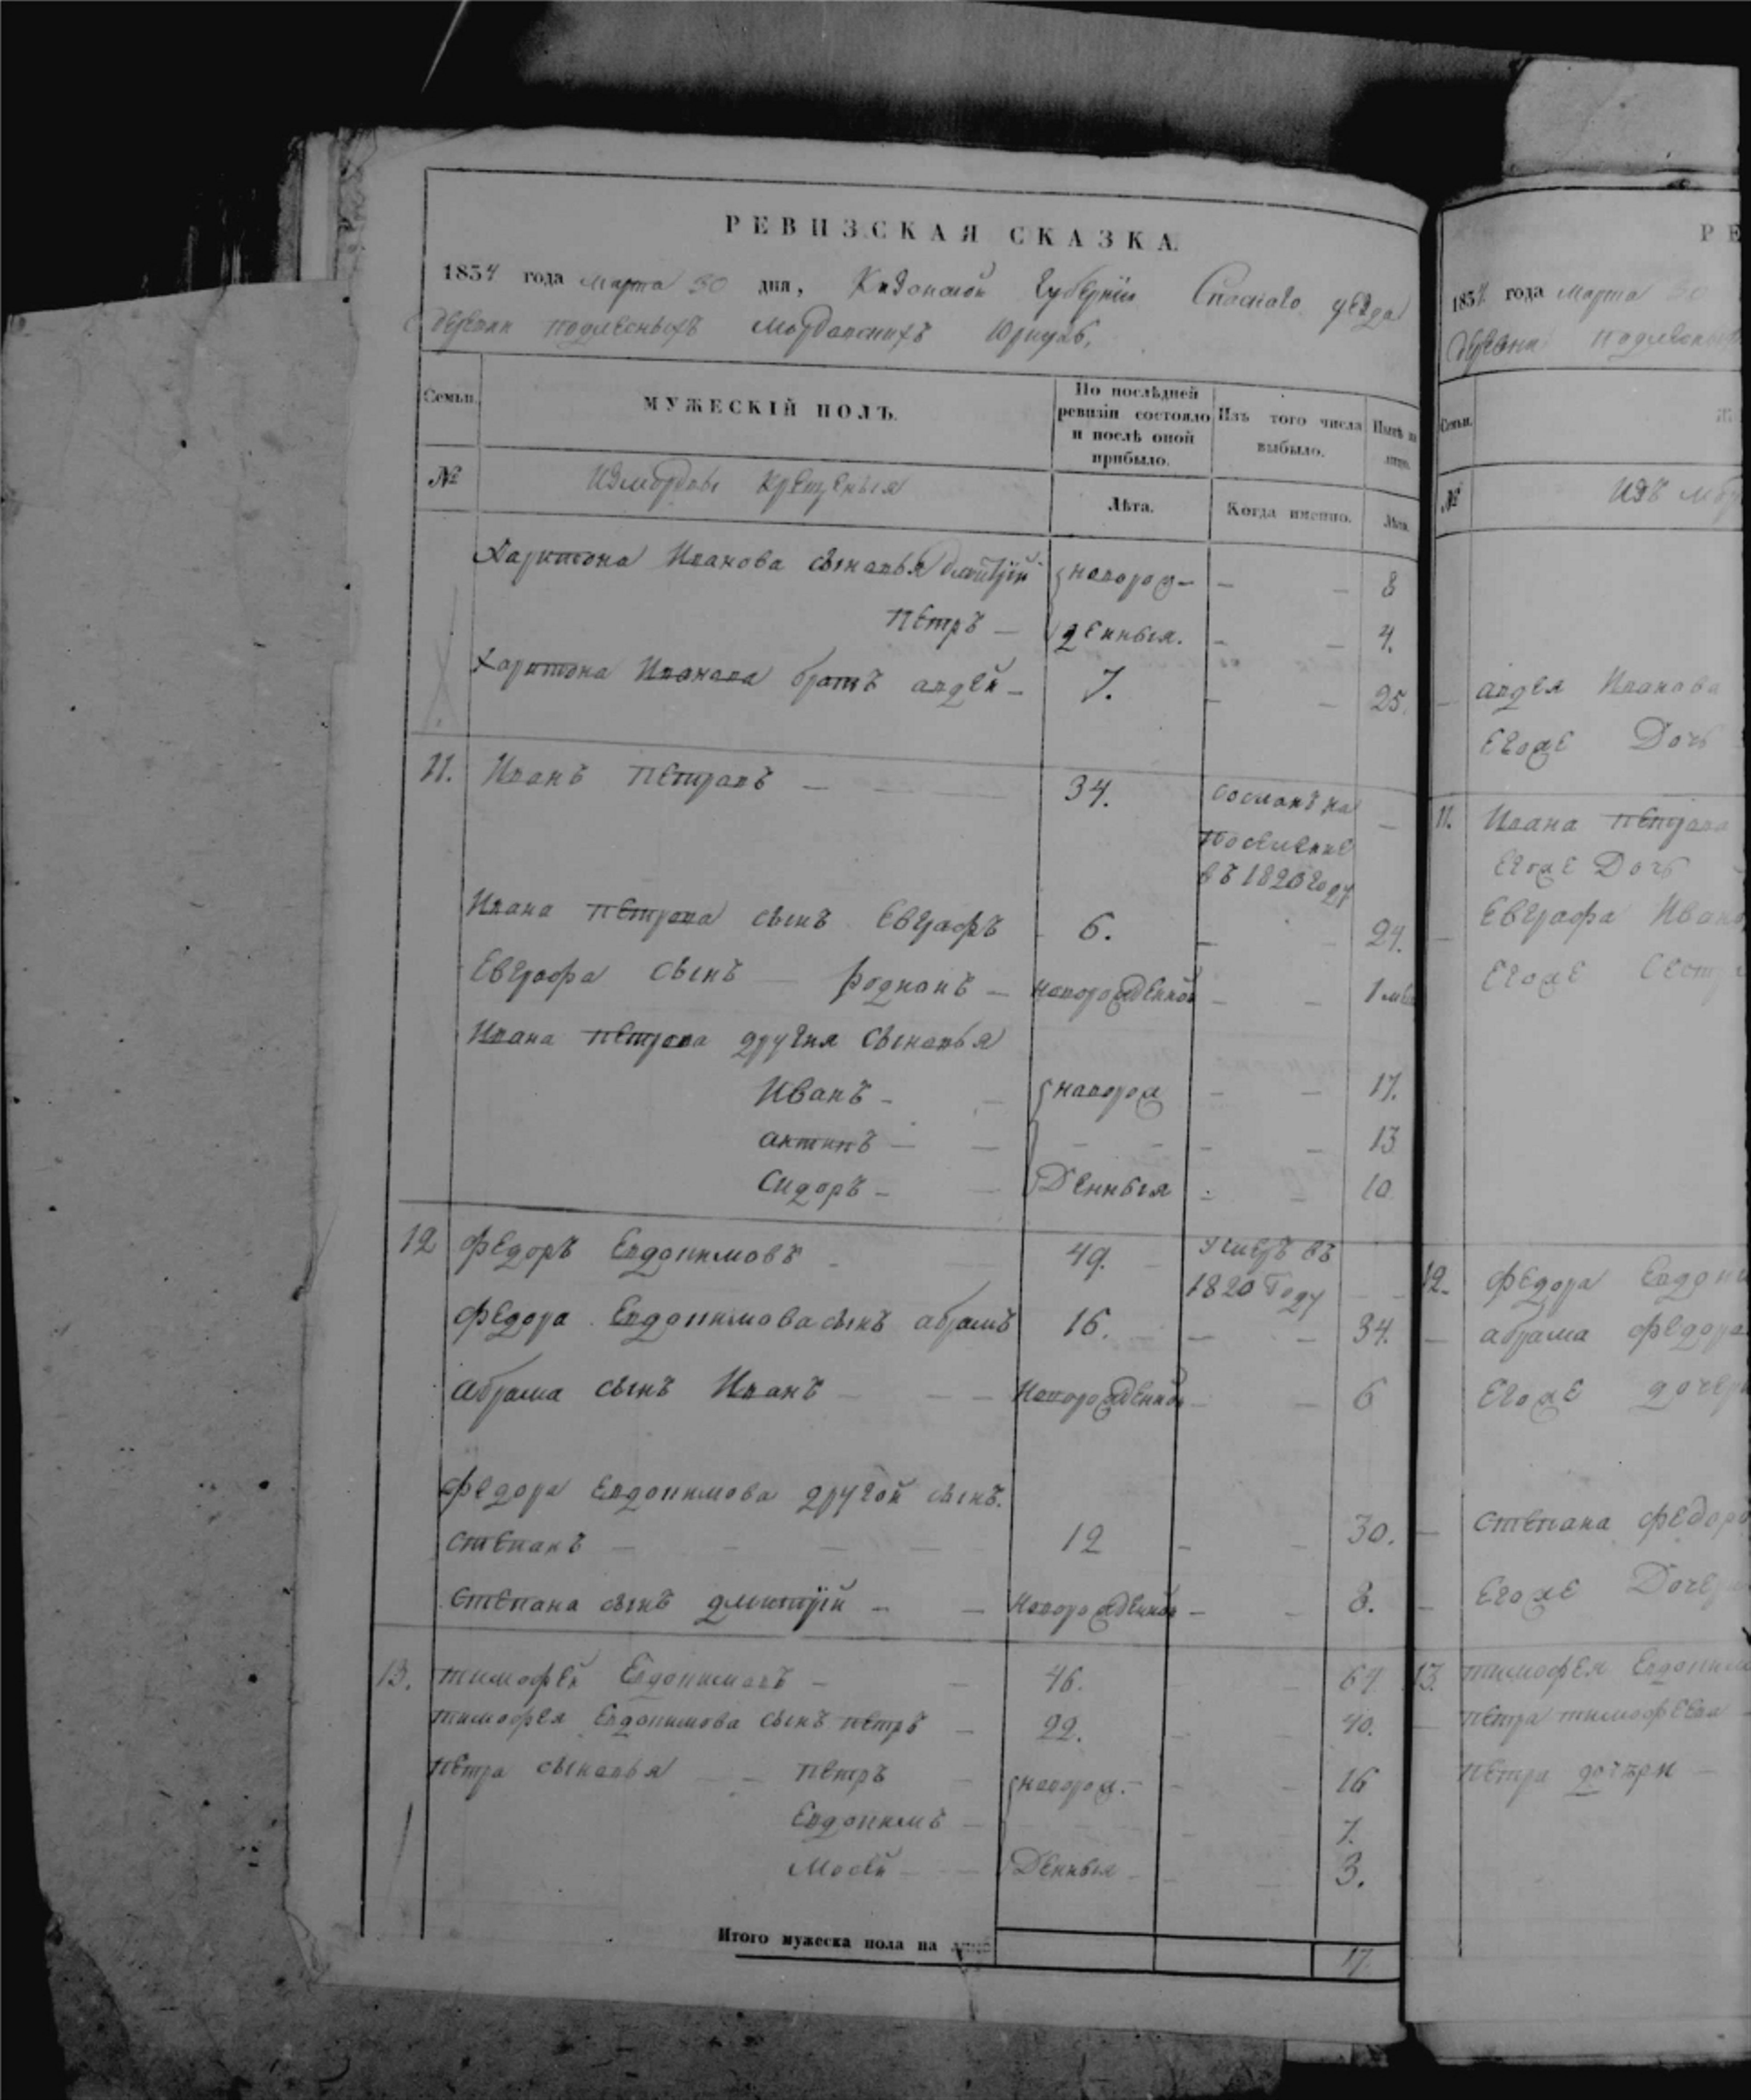 РЕВИЗСКАЯ СКАЗКА.
1834 года марта 30 дня, Казанской Губернiи Спаскаго уезда
деревни подлесныхъ Мордовскихъ Юркулъ,
Семьи.
МУЖЕСКIЙ ПОЛЪ.
По послѣдней ревизiи состояло и послѣ оной прибыло.
Изъ того числа выбыло.
Нынѣ на лицо.
№
Измордвы Крещеныя
Лѣта.
Когда именно.
Лѣта.
Харитона Иванова сыновья Дмитрiй новорож- - - 8
Петръ - денныя. - - 4.
Харитона Иванова братъ авдей - 7. - - 25.
11. Иванъ Петровъ - 34. сосланъ на -
поселение
въ 1820 году
Ивана Петрова сынъ Евграфъ 6. - - 24.
Евграфа сынъ - Родионъ - новорожденной - - 1 ме
Ивана Петрова другия сыновья
Иванъ - - новорож - - 17.
антипъ - - - - - - 13
Сидоръ - - Денныя - - 10
12 Федоръ Евдокимовъ - 49. - умеръ въ
1820 Году - -
Федора Евдокимова сынъ абрамъ 16. - - 34.
абрама сынъ Иванъ - - - Новорожденной - - 6
Федора Евдокимова другой сынъ.
степанъ - - - - 12 - - 30.
степана сынъ дмитрiй - - Новорожденной - - 8.
13. тимофей Евдокимовъ - - 46. - - 64
тимофея Евдокимова сынъ петръ - 22. - - 40.
петра сыновья - - петръ - новорож. - - - 16
Евдокимъ - - - 7.
Мосей - - Денныя - - - 3.
Итого мужеска пола на
17.
РЕ
1834 года марта 30
деревни подлесных
Семьи.
№
Изъ мор
авдея Иванова
Егоже Дочь
11. Ивана петрова
Егоже Дочь
Евграфа Ивано
Егоже Сестр
12. Федора Евдоки
абрама Федоро
Егоже дочери
степана федоро
Егоже Дочери
13. тимофея Евдоким
петра тимофеева
петра дочери -